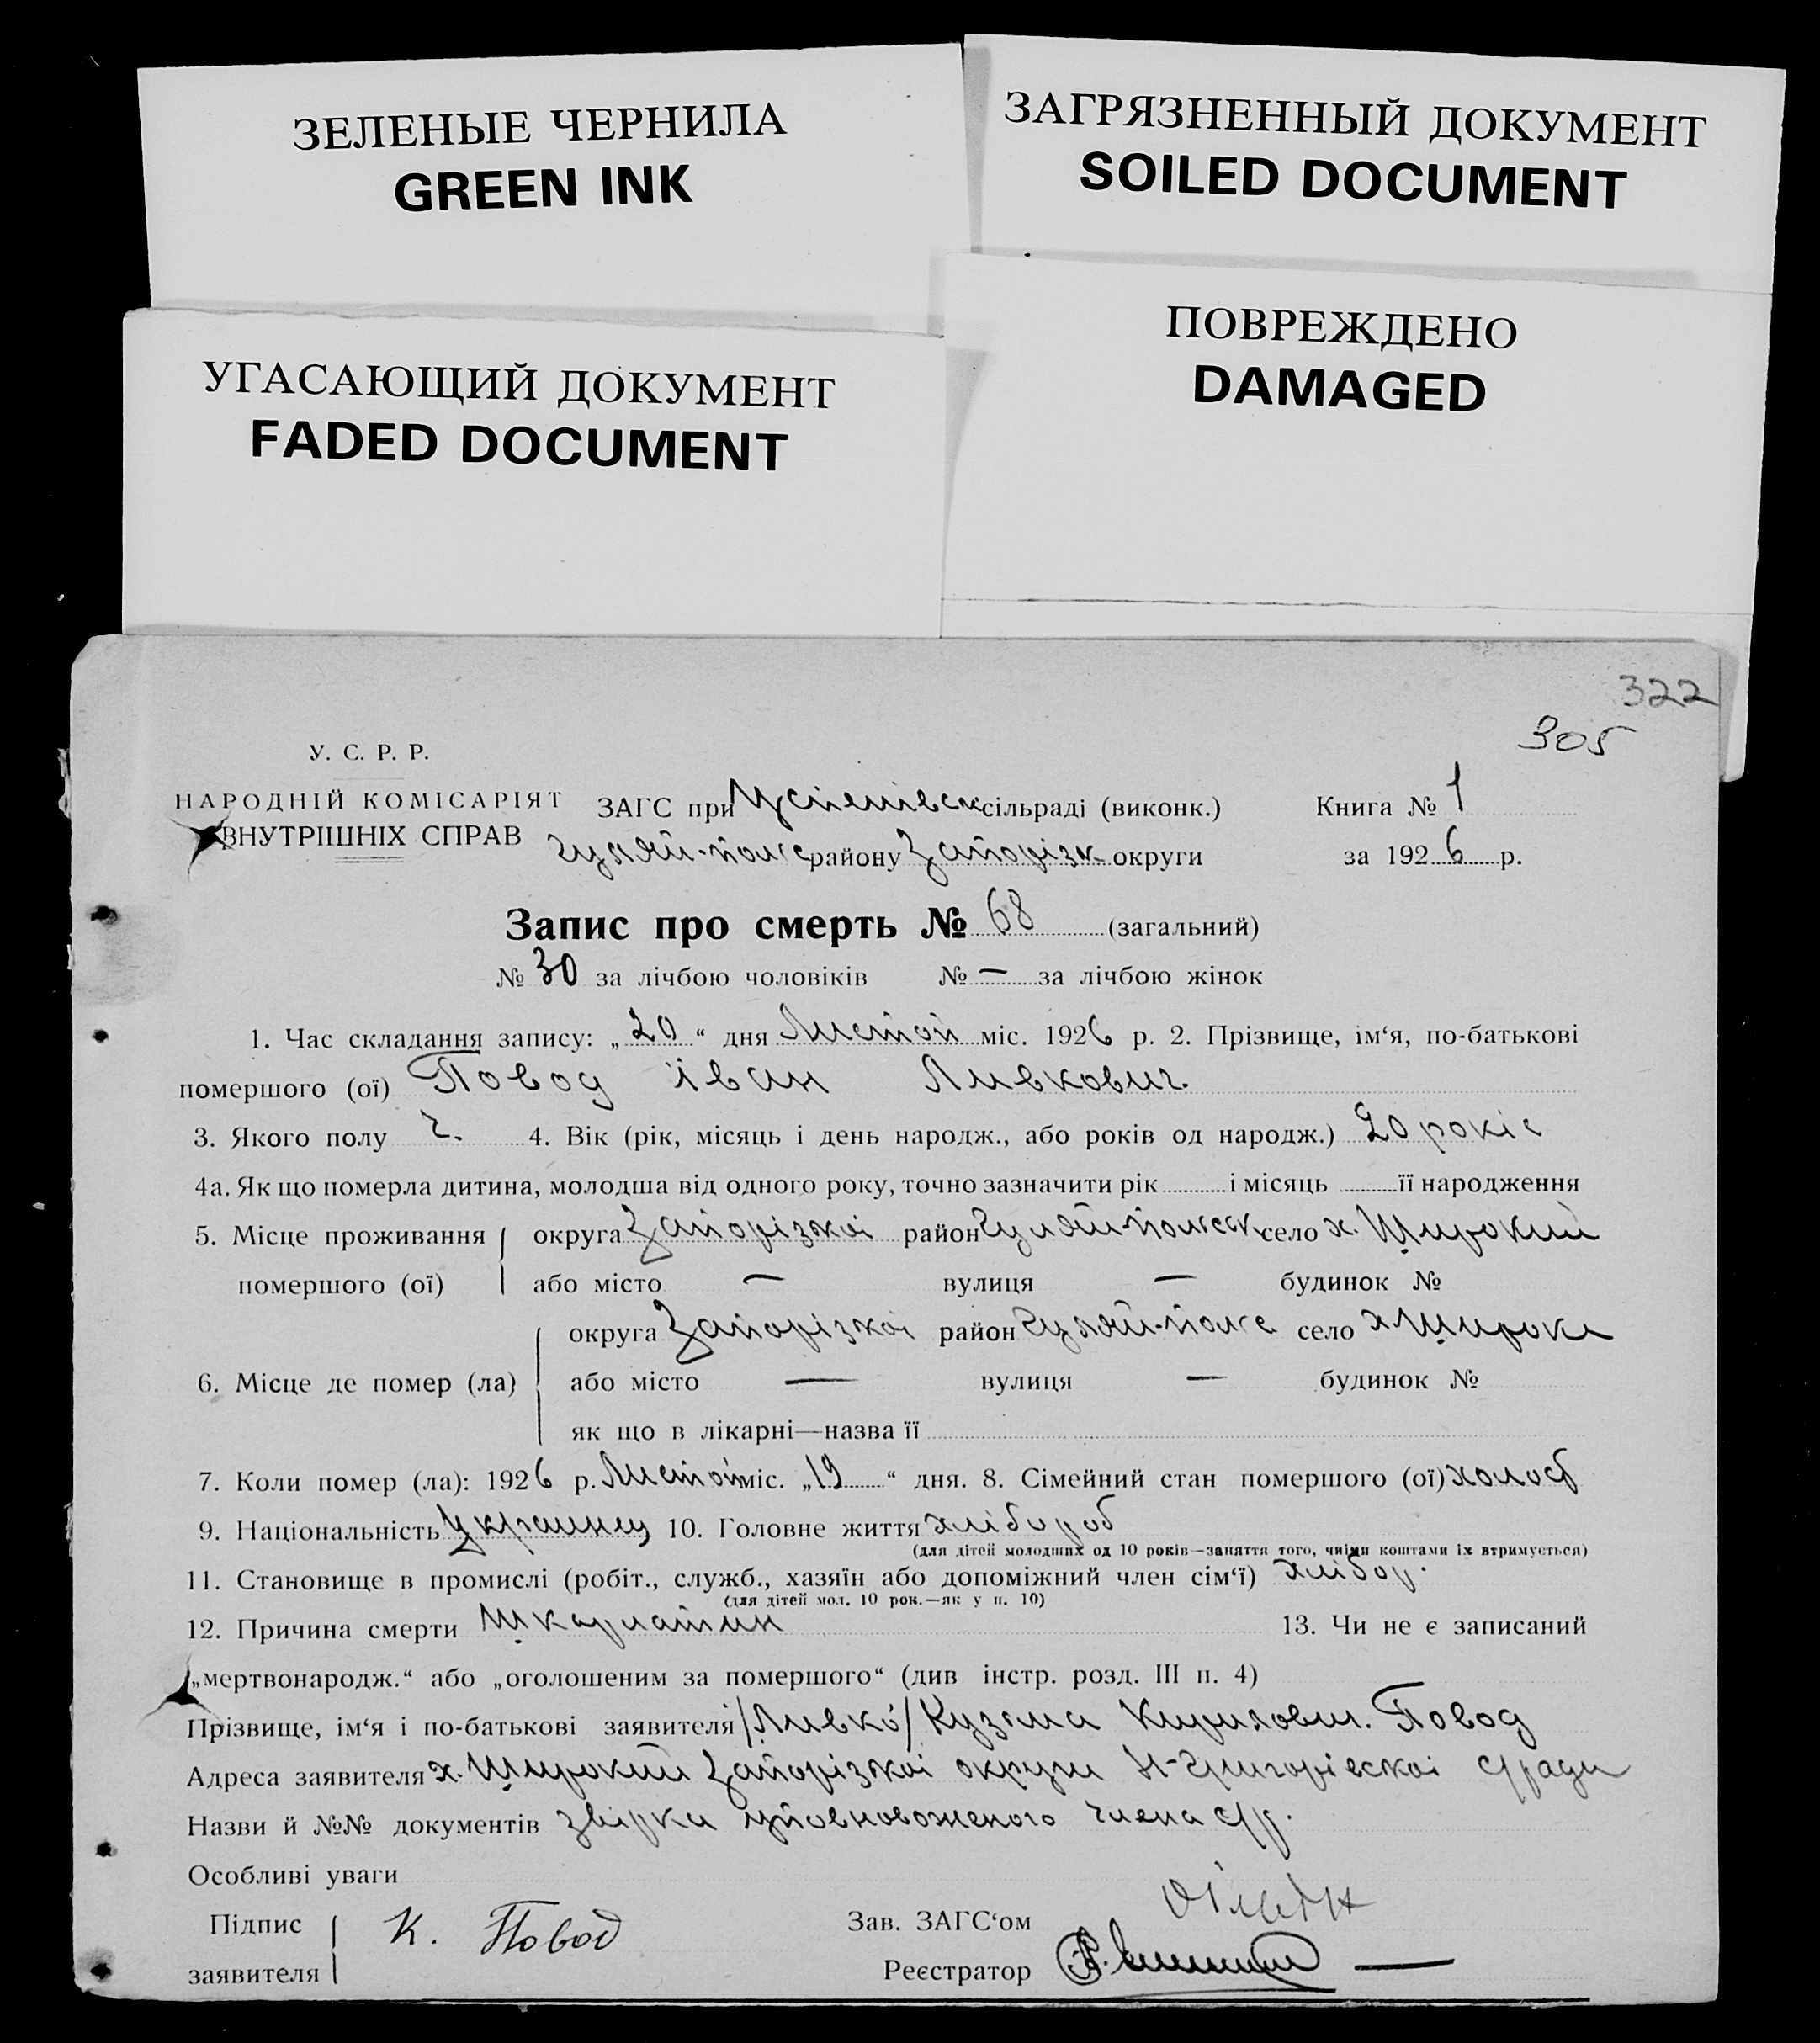 ЗЕЛЕНЫЕ ЧЕРНИЛА
GREEN INK
ЗАГРЯЗНЕННЫЙ ДОКУМЕНТ
SOILED DOCUMENT
УГАСАЮЩИЙ ДОКУМЕНТ
FADED DOCUMENT
ПОВРЕЖДЕНО
DAMAGED
322
305
У. С. Р. Р.
НАРОДНІЙ КОМІСАРІЯТ
ВНУТРІШНІХ СПРАВ
ЗАГС при Успенівск сільраді (виконк.)
Гуляй-польс району Запорізк округи
Книга № 1
за 1926 р.
Запис про смерть № 68 (загальний)
№ 30 за лічбою чоловіків № — за лічбою жінок
1. Час складання запису: „20“ дня Листоп міс. 1926 р. 2. Прізвище, ім‘я, по-батькові
помершого (ої) Повод Іван Ливкович.
3. Якого полу ч. 4. Вік (рік, місяць і день народж., або років од народж.) 20 років
4а. Як що померла дитина, молодша від одного року, точно зазначити рік і місяць її народження
5. Місце проживання помершого (ої) округа Запорізкоі район Гуляй-польск село х. Широкий
або місто — вулиця — будинок №
6. Місце де помер (ла) округа Запорізкоі район Гуляй-польс село х Широки
або місто — вулиця — будинок №
як що в лікарні—назва її
7. Коли помер (ла): 1926 р. Листоп міс. „19“ дня. 8. Сімейний стан помершого (ої) холост
9. Національність Украинец 10. Головне життя хлібороб
(для дітей молодших од 10 років—заняття того, чиїми коштами їх втримується)
11. Становище в промислі (робіт., служб., хазяїн або допоміжний член сім‘ї) хлібор.
(для дітей мол. 10 рок.—як у п. 10)
12. Причина смерти Шкарлатин 13. Чи не є записаний
„мертвонародж.“ або „оголошеним за помершого“ (див інстр. розд. III п. 4)
Прізвище, ім‘я і по-батькові заявителя /Ливко/ Кузьма Кирилович. Повод
Адреса заявителя х. Широкий Запорізкоі округи Н-Григорівскоі с/ради
Назви й №№ документів звірка уповноваженого члена с/р.
Особливі уваги
Підпис заявителя К. Повод
Зав. ЗАГС‘ом
Реєстратор